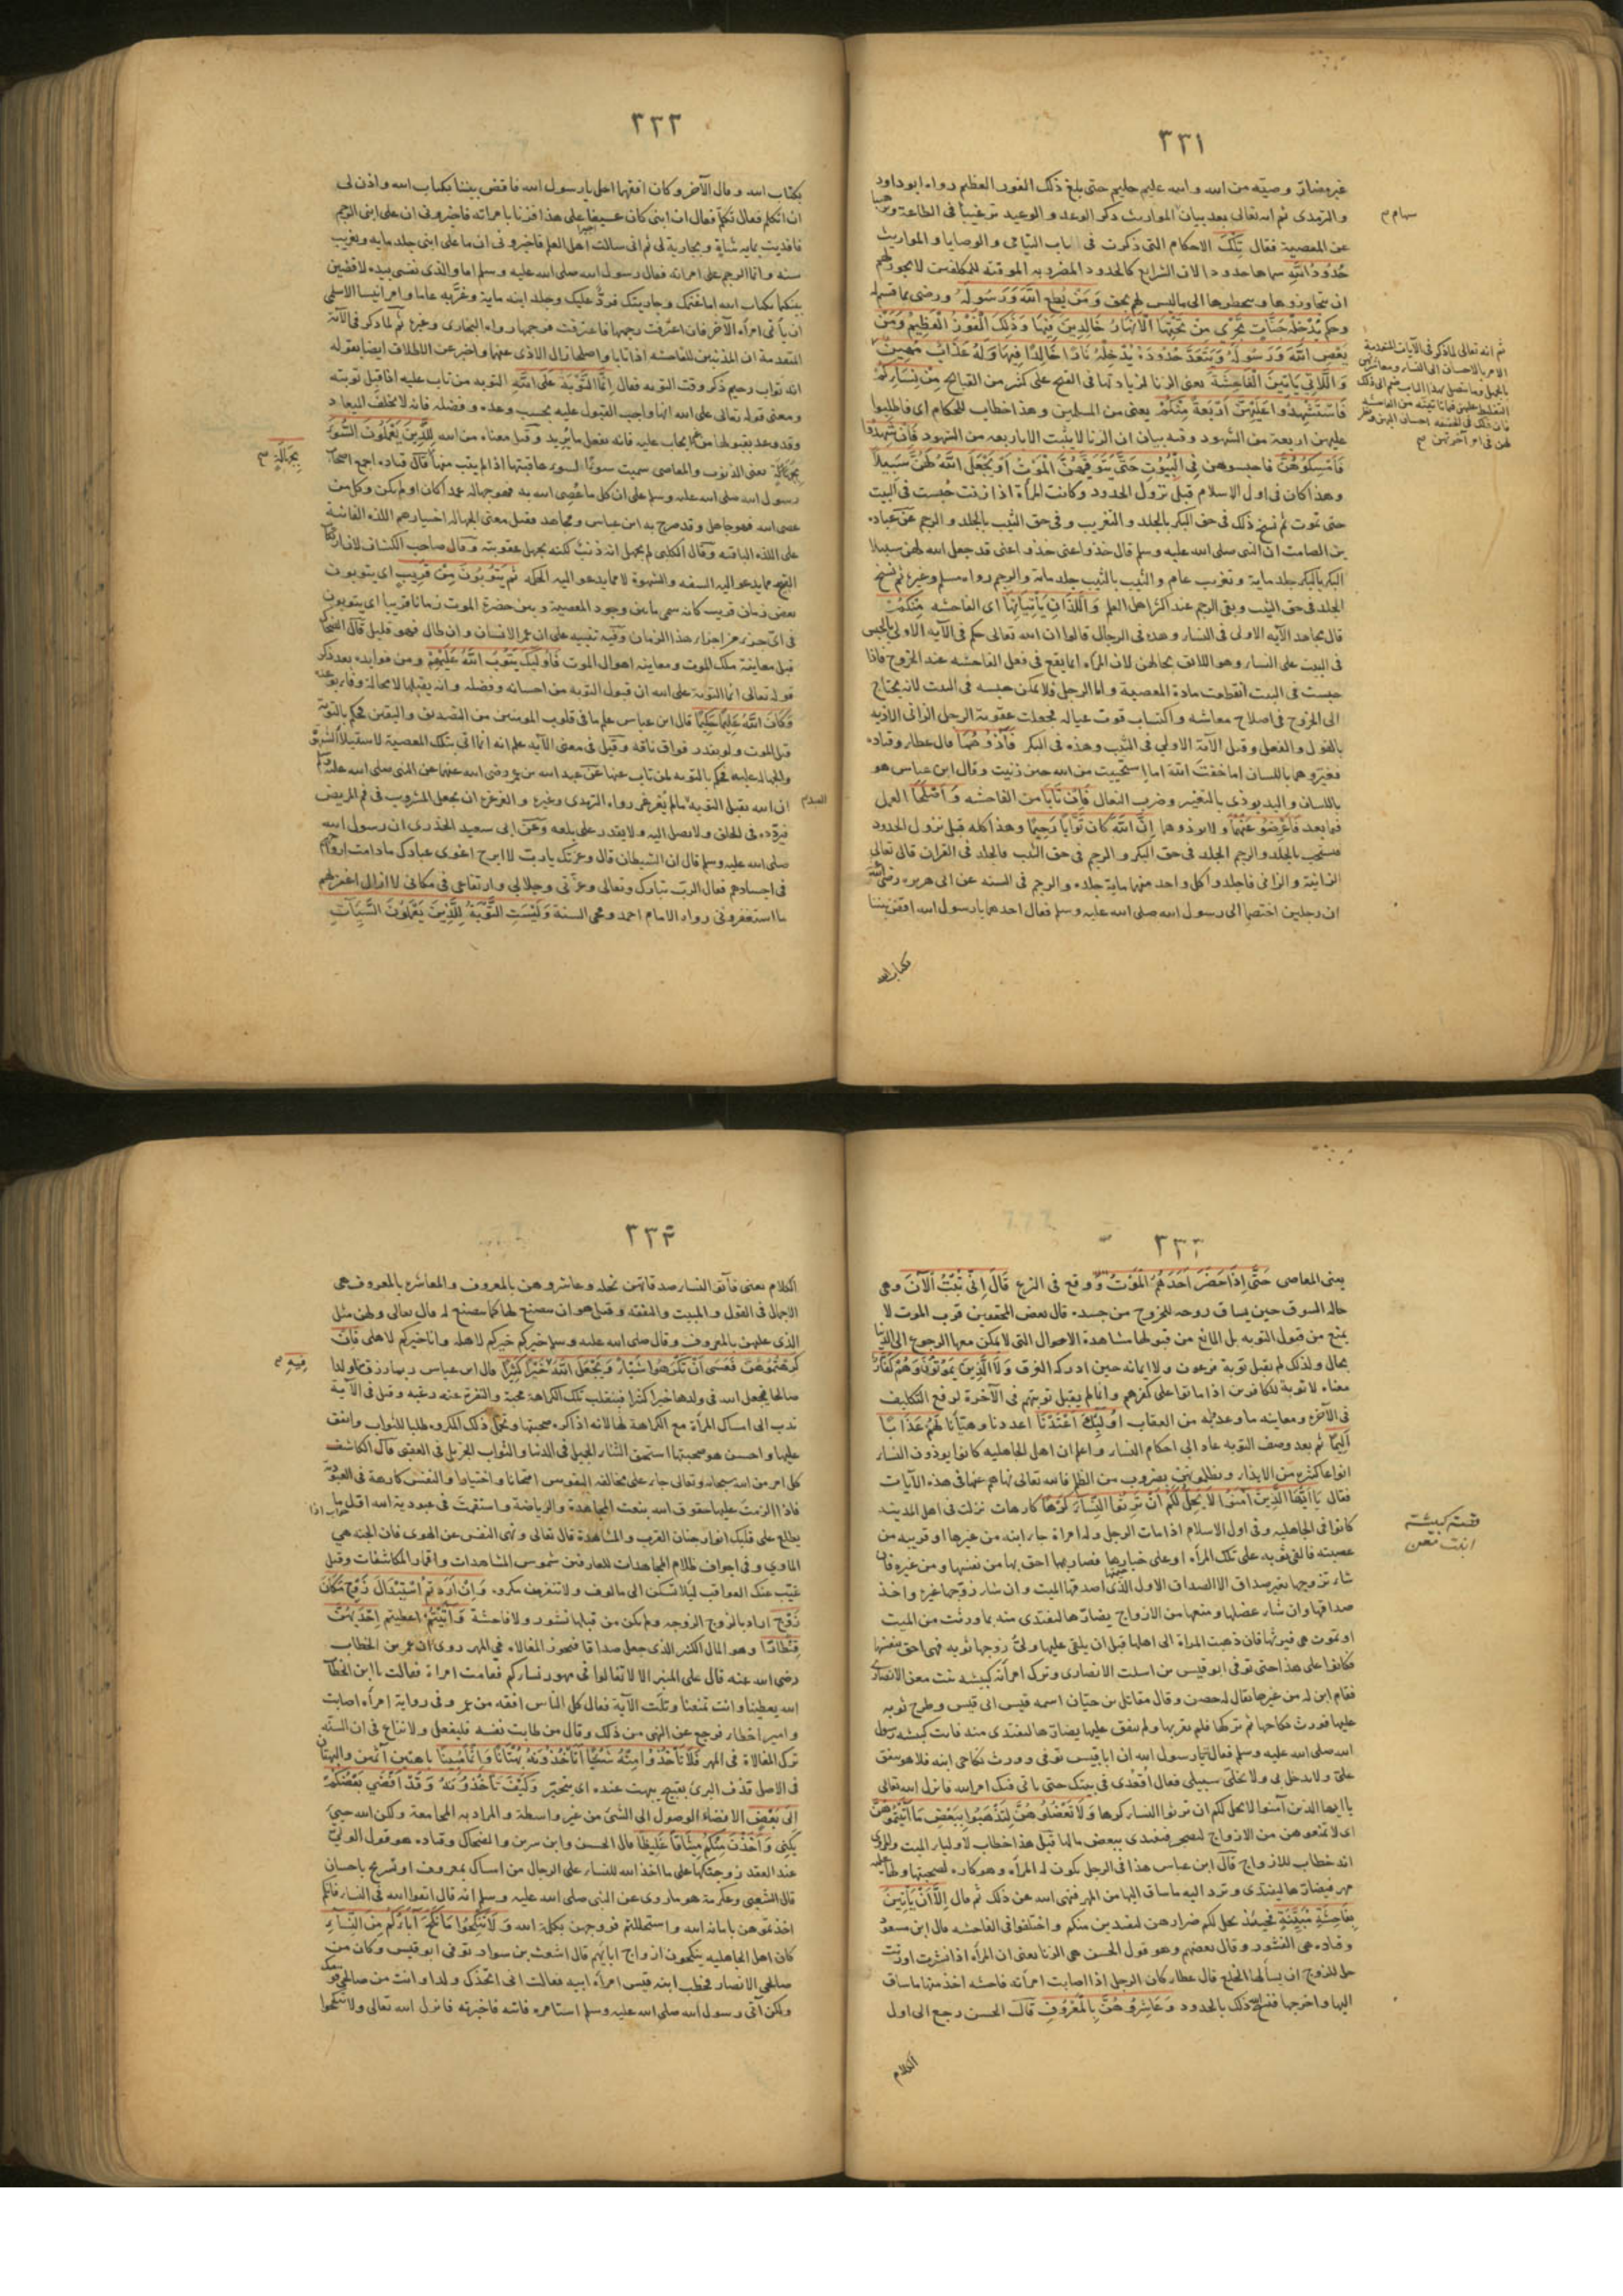 ٣٣١
غير مضار وصية من الله والله عليم حليم حتى بلغ ذلك الفوز العظيم رواه ابو داود
والترمذى ثم انه تعالى بعد بيان المواريث ذكر الوعد والوعيد ترغيبا فى الطاعة وترهيبا
عن المعصية فقال تِلْكَ الاحكام التى ذكرت فى باب اليتامى والوصايا والمواريث
حُدُودُ اللّهِ سماها حدودا لان الشرايع كالحدود المضروبه الموقته للمكلفين لا يجوز لهم
ان يتجاوزوها ويتخطوها الى ما ليس لهم بحق وَمَنْ يُطِعِ اللّهَ وَرَسُولَهُ ورضى بما قسم له
وحكم يُدْخِلْهُ جَنَّاتٍ تَجْرِى مِنْ تَحْتِهَا الْاَنْهَارُ خَالِدِينَ فِيهَا وَذَلِكَ الْفَوْزُ الْعَظِيمُ وَمَنْ
يَعْصِ اللّهَ وَرَسُولَهُ وَيَتَعَدَّ حُدُودَهُ يُدْخِلْهُ نَارًا خَالِدًا فِيهَا وَلَهُ عَذَابٌ مُهِينٌ
وَالَّلاتِى يَاْتِينَ الْفَاحِشَةَ يعنى الزنا لزيادتها فى القبح على كثير من القبائح مِنْ نِسَائِكُمْ
فَاسْتَشْهِدُوا عَلَيْهِنَّ اَرْبَعَةً مِنْكُمْ يعنى من المسلمين وهذا خطاب للحكام اى فاطلبوا
عليهن اربعة من الشهود وفيه بيان ان الزنا لا يثبت الا باربعه من الشهود فَاِنْ شَهِدُوا
فَاَمْسِكُوهُنَّ فاحبسوهن فِى الْبُيُوتِ حَتَّى يَتَوَفَّيهُنَّ الْمَوْتُ اَوْ يَجْعَلَ اللّهُ لَهُنَّ سَبِيلاً
وهذا كان فى اول الاسلام قبل نزول الحدود وكانت المرأة اذا زنت حبست فى البيت
حتى تموت ثم نسخ ذلك فى حق البكر بالجلد والتغريب وفى حق الثيب بالجلد والرجم عن عباده
بن الصامت ان النبى صلى الله عليه وسلم قال خذوا عنى خذوا عنى قد جعل الله لهن سبيلا
البكر بالبكر جلد ماية وتغريب عام والثيب بالثيب جلد ماية والرجم رواه مسلم وغيره ثم نسخ
الجلد فى حق الثيب وبقى الرجم عند اكثر اهل العلم وَاللَّذَانِ يَاْتِيَانِهَا اى الفاحشه مِنْكُمْ
قال مجاهد الآيه الاولى فى النساء وهذه فى الرجال قالوا ان الله تعالى حكم فى الآيه الاولى بالحبس
فى البيت على النساء وهو اللائق بحالهن لان المرأه انما يقع فى فعل الفاحشه عند الخروج فاذا
حبست فى البيت انقطعت مادة المعصية واما الرجل فلا يمكن حبسه فى البيت لانه يحتاج
الى الخروج فى اصلاح معاشه واكتساب قوت عياله فجعلت عقوبة الرجل الزانى الاذيه
بالقول والفعل وقيل الآيه الاولى فى الثيب وهذه فى البكر فَآذُوهُمَا قال عطا وقتاده
فعيّروهما باللسان اما خفت الله اما استحييت من الله حين زنيت وقال ابن عباس هو
باللسان واليد يوذى بالتعيير وضرب النعال فَاِنْ تَابَا من الفاحشه وَاَصْلَحَا العمل
فيما بعد فَاَعْرِضُوا عَنْهُمَا ولا توذوهما اِنَّ اللّهَ كَانَ تَوَّابًا رَحِيمًا وهذا كله قبل نزول الحدود
فنسخت بالجلد والرجم الجلد فى حق البكر والرجم فى حق الثيب فالجلد فى القران قال تعالى
الزانية والزانى فاجلدوا كل واحد منهما ماية جلده والرجم فى السنه عن ابى هريره رضى الله عنه
ان رجلين اختصما الى رسول الله صلى الله عليه وسلم فقال احدهما يا رسول الله اقض بيننا
بكتاب الله
ثم انه تعالى لما ذكر فى الآيات المتقدمة
الامر بالاحسان الى النساء ومعاشرتهن
بالجميل وما يتصل بهذا الباب ضم الى ذلك
التغليظ عليهن فيما ياتينه من الفاحشة
فان ذلك فى الحقيقه احسان اليهن ونظر
لهن فى امر آخرتهن
٣٣٢
بكتاب الله وقال الآخر وكان افقههما اجل يا رسول الله فاقض بيننا بكتاب الله واذن لى
ان اتكلم فقال تكلم فقال ان ابنى كان عسيفا على هذا فزنا بامراته فاخبرونى ان على ابنى الرجم
فافتديت بمايه شاة وبجارية لى ثم انى سالت اهل العلم فاخبرونى ان ما على ابنى جلد مايه وتغريب
سنه وانما الرجم على امراته فقال رسول الله صلى الله عليه وسلم اما والذى نفسى بيده لاقضين
بينكما بكتاب الله اما غنمك وجاريتك فردٌّ عليك وجلد ابنه ماية وغرّبه عاما وامر انيسا الاسلمى
ان ياتى امراة الآخر فان اعترفت رجمها فاعترفت فرجمها رواه البخارى وغيره ثم لما ذكر فى الآية
المتقدمة ان المذنبين للفاحشه اذا تابا واصلحا زال الاذى عنهما واخبر عن الاطلاق ايضا بقوله
انه تواب رحيم ذكر وقت التوبه فقال اِنَّمَا التَّوْبَةُ عَلَى اللّهِ التوبه من تاب عليه اذا قبل توبته
ومعنى قوله تعالى على الله انها واجب القبول عليه بحسب وعده وفضله فانه لا يخلف الميعاد
وقد وعد بقبولها من غير ايجاب عليه فانه يفعل ما يريد وقيل معناه من الله لِلَّذِينَ يَعْمَلُونَ السُّوءَ
بِجَهَالَةٍ يعنى الذنوب والمعاصى سميت سوءًا لسوء عاقبتها اذا لم يتب منها قال قتاده اجمع اصحاب
رسول الله صلى الله عليه وسلم على ان كل ما عُصِى الله به فهو جهاله عمدا كان او لم يكن وكل من
عصى الله فهو جاهل وقد صرح به ابن عباس ومجاهد وقيل معنى الجهاله اختيارهم اللذه الفانية
على اللذه الباقيه وقال الكلبى لم يجهل انه ذنب لكنه يجهل عقوبته وقال صاحب الكشاف
القبيح مما يدعو اليه السفه والشهوة لا مما يدعو اليه الحكمه ثُمَّ يَتُوبُونَ مِنْ قَرِيبٍ اى يتوبون
بعض زمان قريب كانه سمى ما بين وجود المعصية وبين حضرة الموت زمانا قريبا اى يتوبون
فى اى جزء من اجزاء هذا الزمان وفيه تنبيه على ان عمر الانسان وان طال فهو قليل قال الضحاك
قبل معاينة ملك الموت ومعاينه اهوال الموت فَاُولَئِكَ يَتُوبُ اللّهُ عَلَيْهِمْ ومن فوايده بعد ذكر
قوله تعالى انما التوبة على الله ان قبول التوبه من احسانه وفضله وانه يقبلها لا محالة
وَكَانَ اللّهُ عَلِيمًا حَكِيمًا قال ابن عباس علم ما فى قلوب المومنين من التصديق واليقين فحكم بالتوبة
قبل الموت ولو بقدر فواق ناقه وقيل فى معنى الآيه علم انه انما اتى بتلك المعصية لاستيلا الشهوة
والجهاله عليه فحكم بالتوبه لمن تاب عنها عن عبد الله بن عمر رضى الله عنهما عن النبى صلى الله عليه وسلم
ان الله يقبل التوبه ما لم يغرغر رواه الترمذى وغيره والغرغره ان يجعل المشروب فى فم المريض
فيرّدده فى الحلق ولا يصل اليه ولا يقدر على بلعه وَعَن ابى سعيد الخدرى ان رسول الله
صلى الله عليه وسلم قال ان الشيطان قال وعزتك يا رب لا ابرح اغوى عبادك ما دامت ارواحهم
فى اجسادهم فقال الرب تبارك وتعالى وعزتى وجلالى وارتفاعى فى مكانى لا ازال اغفر لهم
ما استغفرونى رواه الامام احمد ومحى السنة وَلَيْسَتِ التَّوْبَةُ لِلَّذِينَ يَعْمَلُونَ السَّيِّئَاتِ
بِجَهَالَةٍ
٣٣٣
يعنى المعاصى حَتَّى اِذَا حَضَرَ اَحَدَهُمُ الْمَوْتُ ووقع فى النزع قَالَ اِنِّى تُبْتُ الْآنَ وهى
حاله السوق حين يساق روحه للخروج من جسده قال بعض المحققين قرب الموت لا
يمنع من قبول التوبه بل المانع من قبولها مشاهدة الاحوال التى لا يمكن معها الرجوع الى الدنيا
بحال ولذلك لم يقبل توبة فرعون ولا ايمانه حين ادركه الغرق وَلاَ الَّذِينَ يَمُوتُونَ وَهُمْ كُفَّارٌ
معناه لا توبة للكافرين اذا ماتوا على كفرهم وانما لم يقبل توبتهم فى الآخرة لرفع التكليف
فى الآخره ومعاينه ما وعد لهم من العقاب اُولَئِكَ اَعْتَدْنَا اعددنا وهيّأنا لَهُمْ عَذَابًا
اَلِيمًا ثم بعد وصف التوبه عاد الى احكام النساء واعلم ان اهل الجاهليه كانوا يوذون النساء
انواعا كثيره من الايذاء ويظلمونهن بضروب من الظلم فالله تعالى نهاهم عنها فى هذه الآيات
فقال يَا اَيُّهَا الَّذِينَ آمَنُوا لاَ يَحِلُّ لَكُمْ اَنْ تَرِثُوا النِّسَاءَ كَرْهًا كارهات نزلت فى اهل المدينه
كانوا فى الجاهليه وفى اول الاسلام اذا مات الرجل وله امراة جاء ابنه من غيرها او قريبه من
عصبته فالقى ثوبه على تلك المرأه او على خبايها فصار بها احق بها من نفسها ومن غيره فان
شاء تزوجها بغير صداق الا الصداق الاول الذى اصدقها الميت وان شاء زوّجها غيره واخذ
صداقها وان شاء عضلها ومنعها من الازواج يضارها لتفتدى منه بما ورثت من الميت
او تموت هى فيرثها فان ذهبت المراة الى اهلها قبل ان يلقى عليها ولى زوجها ثوبه فهى احق بنفسها
فكانوا على هذا حتى توفى ابو قيس بن اسلت الانصارى وترك امرأته كبيشه بنت معن الانصاريه
فقام ابن له من غيرها يقال له حصن وقال مقاتل بن حيّان اسمه قيس ابى قيس وطرح ثوبه
عليها فورث نكاحها ثم تركها فلم يقربها ولم ينفق عليها يضارها لتفتدى منه فاتت كبيشه رسول
الله صلى الله عليه وسلم فقالت يا رسول الله ان ابا قيس توفى وورث نكاحى ابنه فلا هو ينفق
علىّ ولا يدخل بى ولا يخلى سبيلى فقال اقعُدى فى بيتك حتى ياتى فيك امر الله فانزل الله تعالى
يا ايها الذين آمنوا لا يحل لكم ان ترثوا النساء كرها وَلاَ تَعْضُلُوهُنَّ لِتَذْهَبُوا بِبَعْضِ مَا آتَيْتُمُوهُنَّ
اى لا تمنعوهن من الازواج لتضجر فتفتدى ببعض مالها قيل هذا خطاب لاولياء الميت والمروى
انه خطاب للازواج قَالَ ابن عباس هذا فى الرجل يكون له المرأه وهو كاره لصحبتها ولها عليه
مهر فيضارها لتفتدى وترد اليه ما ساق اليها من المهر فنهى الله عن ذلك ثم قال اِلاَّ اَنْ يَاْتِينَ
بِفَاحِشَةٍ مُبَيِّنَةٍ فحينئذ يحل لكم ضرارهن ليفتدين منكم واختلفوا فى الفاحشه قال ابن مسعود
وقتاده هى النشوز وقال بعضهم وهو قول الحسن هى الزنا يعنى ان المرأه اذا نشزت او زنت
حل للزوج ان يسألها الخلع قال عطاء كان الرجل اذا اصابت امرأته فاحشه اخذ منها ما ساق
اليها واخرجها فنسخ ذلك بالحدود وَعَاشِرُوهُنَّ بِالْمَعْرُوفِ قَالَ الحسن رجع الى اول
الكلام
قصة كبيشة
ابنت معن
٣٣٤
الكلام يعنى فآتوا النساء صدقاتهن نحله وعاشروهن بالمعروف والمعاشره بالمعروف هى
الاجمال فى القول والمبيت والنفقه وقيل هو ان يصنع لها كما يصنع له قال تعالى ولهن مثل
الذى عليهن بالمعروف وقال صلى الله عليه وسلم خيركم خيركم لاهله وانا خيركم لاهلى فَاِنْ
كَرِهْتُمُوهُنَّ فَعَسَى اَنْ تَكْرَهُوا شَيْئًا وَيَجْعَلَ اللّهُ خَيْرًا كَثِيرًا قال ابن عباس ربما رزق منها ولدا
صالحا فيجعل الله فى ولدها خيرا كثيرا فينقلب تلك الكراهة محبة والنفرة عنه رغبه وقيل فى الآية
ندب الى امساك المرأة مع الكراهة لها لانه اذا كره صحبتها وتحمل ذلك المكروه طلبا للثواب وانفق
عليها واحسن هو صحبتها استحق الثناء الجميل فى الدنيا والثواب الجزيل فى العقبى قال الكاشف
كل امر من الله سبحانه وتعالى جاء على مخالفه النفوس امتحانا واختبارا والنفس كارهة فى العبودية
فاذا الزمت عليها حقوق الله بنعت المجاهدة والرياضة واستقمت فى عبودية الله
يطلع على قلبك انوار جنان القرب والمشاهدة قال تعالى ونهى النفس عن الهوى فان الجنه هى
الماوى وفى اجواف ظلام المجاهدات للعارفين شموس المشاهدات واقمار المكاشفات وقيل
غيّب عنك العواقب ليلا تسكن الى مالوف ولا تنفر من مكروه وَاِنْ اَرَدْتُمُ اسْتِبْدَالَ زَوْجٍ مَكَانَ
زَوْجٍ اراد بالزوج الزوجه ولم يكن من قبلها نشوز ولا فاحشة وَآتَيْتُمْ اعطيتم اِحْدَيهُنَّ
قِنْطَارًا وهو المال الكثير الذى جعل صداقا فيجوز المغالاه فى المهر روى ان عمر بن الخطاب
رضى الله عنه قال على المنبر الا لا تغالوا فى مهور نسائكم فقامت امراة فقالت يا ابن الخطاب
الله يعطينا وانت تمنعنا وتلت الآية فقال كل الناس افقه من عمر وفى رواية امرأه اصابت
وامير اخطأ فرجع عن النهى من ذلك وقال من طابت نفسه فليفعل ولا نزاع فى ان السنّه
ترك المغالاة فى المهر فَلاَ تَاْخُذُوا مِنْهُ شَيْئًا اَتَاْخُذُونَهُ بُهْتَانًا وَاِثْمًا مُبِينًا باهتين آثمين والبهتان
فى الاصل قذف البرى بقبيح يبهت عنده اى يتحير وَكَيْفَ تَاْخُذُونَهُ وَقَدْ اَفْضَى بَعْضُكُمْ
اِلَى بَعْضٍ الافضاء الوصول الى الشئ من غير واسطة والمراد به المجامعة ولكن الله حيىّ
يكنى وَاَخَذْنَ مِنْكُمْ مِيثَاقًا غَلِيظًا قال الحسن وابن سيرين والضحاك وقتاده هو قول الولى
عند العقد زوجتكها على ما اخذ الله للنساء على الرجال من امساك بمعروف او تسريح باحسان
قال الشعبى وعكرمة هو ما روى عن النبى صلى الله عليه وسلم انه قال اتقوا الله فى النساء فانكم
اخذتموهن بامانه الله واستحللتم فروجهن بكلمة الله وَلاَ تَنْكِحُوا مَا نَكَحَ آبَاؤُكُمْ مِنَ النِّسَاءِ
كان اهل الجاهليه ينكحون ازواج ابايهم قال اشعث بن سوار توفى ابو قيس وكان من
صالحى الانصار فخطب ابنه قيس امرأه ابيه فقالت انى اتخذك ولدا وانت من صالحى قومك
ولكن آتى رسول الله صلى الله عليه وسلم استامره فاتته فاخبرته فانزل الله تعالى ولا تنكحوا
فِيهِ